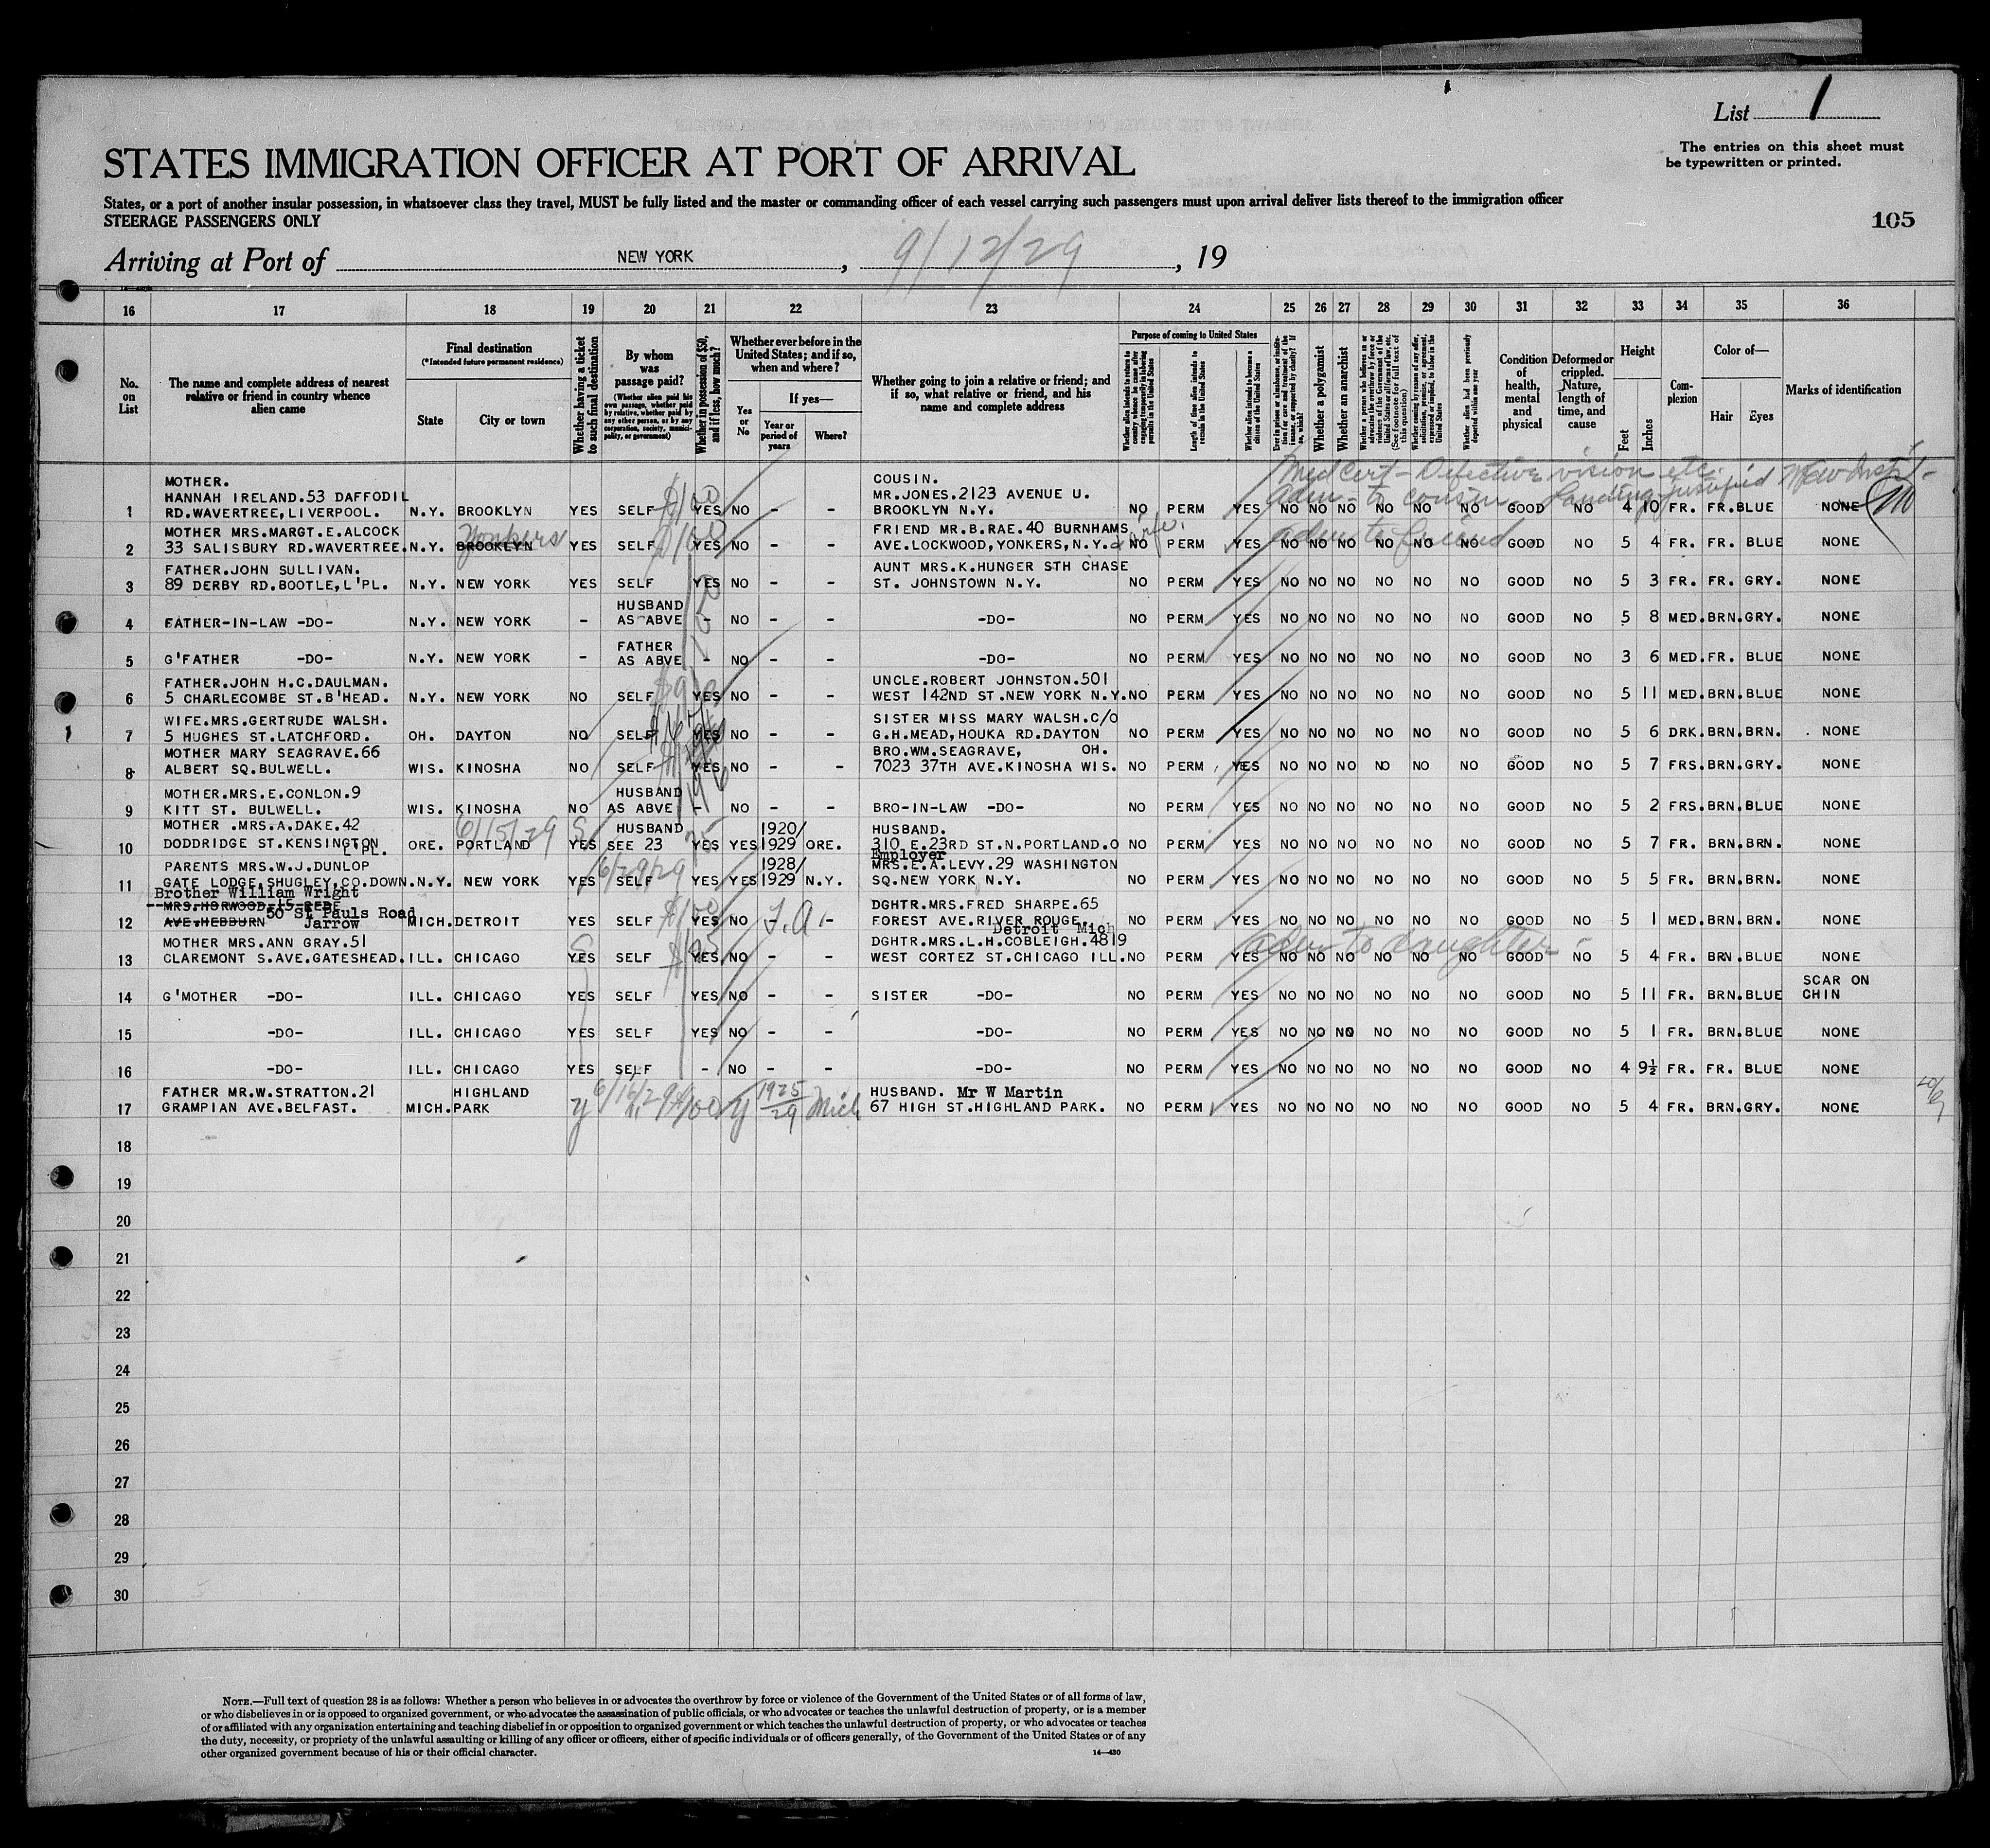 List 1
The entries on this sheet must
be typewritten or printed.
STATES IMMIGRATION OFFICER AT PORT OF ARRIVAL
States, or a port of another insular possession, in whatsoever class they travel, MUST be fully listed and the master or commanding officer of each vessel carrying such passengers must upon arrival deliver lists thereof to the immigration officer
STEERAGE PASSENGERS ONLY
105
Arriving at Port of NEW YORK, 9/12/29, 19
16 17 18 19 20 21 22 23 24 25 26 27 28 29 30 31 32 33 34 35 36
No. on List
The name and complete address of nearest relative or friend in country whence alien came
Final destination
(*Intended future permanent residence)
State
City or town
Whether having a ticket to such final destination
By whom was passage paid?
(Whether alien paid his own passage, whether paid by relative, whether paid by any other person, or by any corporation, society, municipality, or government)
Whether in possession of $50, and if less, how much?
Whether ever before in the United States; and if so, when and where?
Yes or No
If yes—
Year or period of years
Where?
Whether going to join a relative or friend; and if so, what relative or friend, and his name and complete address
Purpose of coming to United States
Whether alien intends to return to country whence he came after engaging temporarily in laboring pursuits in the United States
Length of time alien intends to remain in the United States
Whether alien intends to become a citizen of the United States
Ever in prison or almshouse, or institution for care and treatment of the insane, or supported by charity? If so, which?
Whether a polygamist
Whether an anarchist
Whether a person who believes in or advocates the overthrow by force or violence of the Government of the United States or all forms of law, etc. (See footnote for full text of this question)
Whether coming by reason of any offer, solicitation, promise, or agreement, expressed or implied, to labor in the United States
Whether alien had been previously deported within one year
Condition of health, mental and physical
Deformed or crippled. Nature, length of time, and cause
Height
Feet
Inches
Complexion
Color of—
Hair
Eyes
Marks of identification
Med Cert - Defective vision etc.
Adm - to cousin Landing justified
MOTHER.
HANNAH IRELAND.53 DAFFODIL COUSIN. MR.JONES.2123 AVENUE U.
1 RD.WAVERTREE,LIVERPOOL. N.Y. BROOKLYN YES SELF $100 YES NO - - BROOKLYN N.Y. NO PERM YES NO NO NO NO NO NO GOOD NO 4 10 FR. FR. BLUE NONE
MOTHER MRS.MARGT.E.ALCOCK Yonkers $100 FRIEND MR.B.RAE.40 BURNHAMS adm to friend
2 33 SALISBURY RD.WAVERTREE. N.Y. BROOKLYN YES SELF YES NO - - AVE.LOCKWOOD,YONKERS,N.Y. NO PERM YES NO NO NO NO NO NO GOOD NO 5 4 FR. FR. BLUE NONE
FATHER.JOHN SULLIVAN. AUNT MRS.K.HUNGER STH CHASE
3 89 DERBY RD.BOOTLE,L'PL. N.Y. NEW YORK YES SELF YES NO - - ST. JOHNSTOWN N.Y. NO PERM YES NO NO NO NO NO NO GOOD NO 5 3 FR. FR. GRY. NONE
HUSBAND
4 FATHER-IN-LAW -DO- N.Y. NEW YORK - AS ABVE - NO - - -DO- NO PERM YES NO NO NO NO NO NO GOOD NO 5 8 MED. BRN. GRY. NONE
FATHER
5 G'FATHER -DO- N.Y. NEW YORK - AS ABVE - NO - - -DO- NO PERM YES NO NO NO NO NO NO GOOD NO 3 6 MED. FR. BLUE NONE
FATHER.JOHN H.C.DAULMAN. UNCLE.ROBERT JOHNSTON.501
6 5 CHARLECOMBE ST.B'HEAD. N.Y. NEW YORK NO SELF YES NO - - WEST 142ND ST.NEW YORK N.Y. NO PERM YES NO NO NO NO NO NO GOOD NO 5 11 MED. BRN. BLUE NONE
WIFE.MRS.GERTRUDE WALSH. SISTER MISS MARY WALSH.C/O
7 5 HUGHES ST.LATCHFORD. OH. DAYTON NO SELF YES NO - - G.H.MEAD,HOUKA RD.DAYTON OH. NO PERM YES NO NO NO NO NO NO GOOD NO 5 6 DRK. BRN. BRN. NONE
MOTHER MARY SEAGRAVE.66 BRO.WM.SEAGRAVE,
8 ALBERT SQ.BULWELL. WIS. KINOSHA NO SELF YES NO - - 7023 37TH AVE.KINOSHA WIS. NO PERM YES NO NO NO NO NO NO GOOD NO 5 7 FRS. BRN. GRY. NONE
MOTHER.MRS.E.CONLON.9 HUSBAND
9 KITT ST. BULWELL. WIS. KINOSHA NO AS ABVE - NO - - BRO-IN-LAW -DO- NO PERM YES NO NO NO NO NO NO GOOD NO 5 2 FRS. BRN. BLUE NONE
MOTHER .MRS.A.DAKE.42 6/15/29 HUSBAND 1920/ HUSBAND.
10 DODDRIDGE ST.KENSINGTON L'PL. ORE. PORTLAND YES SEE 23 YES YES 1929 ORE. 310 E.23RD ST.N.PORTLAND.O NO PERM YES NO NO NO NO NO NO GOOD NO 5 7 FR. BRN. BRN. NONE
PARENTS MRS.W.J.DUNLOP 6/29/29 1928/ Employer MRS.E.A.LEVY.29 WASHINGTON
11 GATE LODGE.SHUGLEY.CO.DOWN. N.Y. NEW YORK YES SELF YES YES 1929 N.Y. SQ.NEW YORK N.Y. NO PERM YES NO NO NO NO NO NO GOOD NO 5 5 FR. BRN. BRN. NONE
Brother William Wright
MRS.HORWOOD.15 REDE $100 DGHTR.MRS.FRED SHARPE.65
12 AVE.HEBBURN 50 St Pauls Road Jarrow MICH. DETROIT YES SELF YES NO - FOREST AVE.RIVER ROUGE. Detroit Mich NO PERM YES NO NO NO NO NO NO GOOD NO 5 1 MED. BRN. BRN. NONE
MOTHER MRS.ANN GRAY.51 DGHTR.MRS.L.H.COBLEIGH.4819 adm to daughter
13 CLAREMONT S.AVE.GATESHEAD. ILL. CHICAGO YES SELF YES NO - - WEST CORTEZ ST.CHICAGO ILL. NO PERM YES NO NO NO NO NO NO GOOD NO 5 4 FR. BRN. BLUE NONE
14 G'MOTHER -DO- ILL. CHICAGO YES SELF YES NO - - SISTER -DO- NO PERM YES NO NO NO NO NO NO GOOD NO 5 11 FR. BRN. BLUE SCAR ON CHIN
15 -DO- ILL. CHICAGO YES SELF YES NO - - -DO- NO PERM YES NO NO NO NO NO NO GOOD NO 5 1 FR. BRN. BLUE NONE
16 -DO- ILL. CHICAGO YES SELF - NO - - -DO- NO PERM YES NO NO NO NO NO NO GOOD NO 4 9½ FR. FR. BLUE NONE
FATHER MR.W.STRATTON.21 HIGHLAND HUSBAND. Mr W Martin
17 GRAMPIAN AVE.BELFAST. MICH. PARK y y 1925/29 Mich 67 HIGH ST.HIGHLAND PARK. NO PERM YES NO NO NO NO NO NO GOOD NO 5 4 FR. BRN. GRY. NONE
18
19
20
21
22
23
24
25
26
27
28
29
30
NOTE.—Full text of question 28 is as follows: Whether a person who believes in or advocates the overthrow by force or violence of the Government of the United States or of all forms of law,
or who disbelieves in or is opposed to organized government, or who advocates the assassination of public officials, or who advocates or teaches the unlawful destruction of property, or is a member
of or affiliated with any organization entertaining and teaching disbelief in or opposition to organized government or which teaches the unlawful destruction of property, or who advocates or teaches
the duty, necessity, or propriety of the unlawful assaulting or killing of any officer or officers, either of specific individuals or of officers generally, of the Government of the United States or of any
other organized government because of his or their official character.
14—430